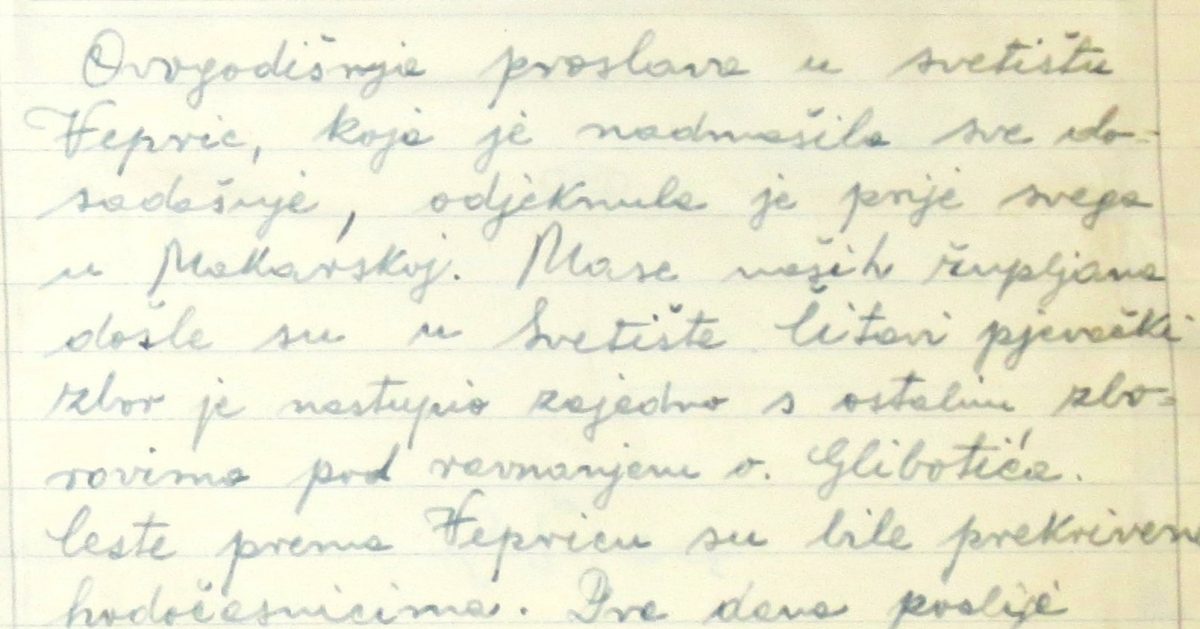 Ovogodišnja proslava u svetištu
Vepric, koja je nadmašila sve do-
sadašnje, odjeknula je prije svega
u Makarskoj. Mase naših župljana
došle su u Svetište Čitavi pjevački
zbor je nastupio zajedno s ostalim zbo-
rovima pod ravnanjem o. Glibotića.
Ceste prema Vepricu su bile prekrivene
hodočasnicima. Dva dana poslije